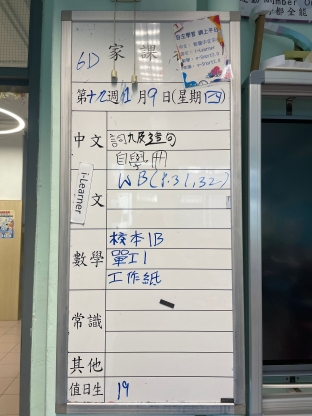 6D 家課
自主學習 網上平台
第十九週 1月9日(星期四)
中文 詞九及造句
自學冊
WB(P.31,32)
i-Learner
文
數學 校本1B
單工1
工作紙
常識
其他
值日生 19